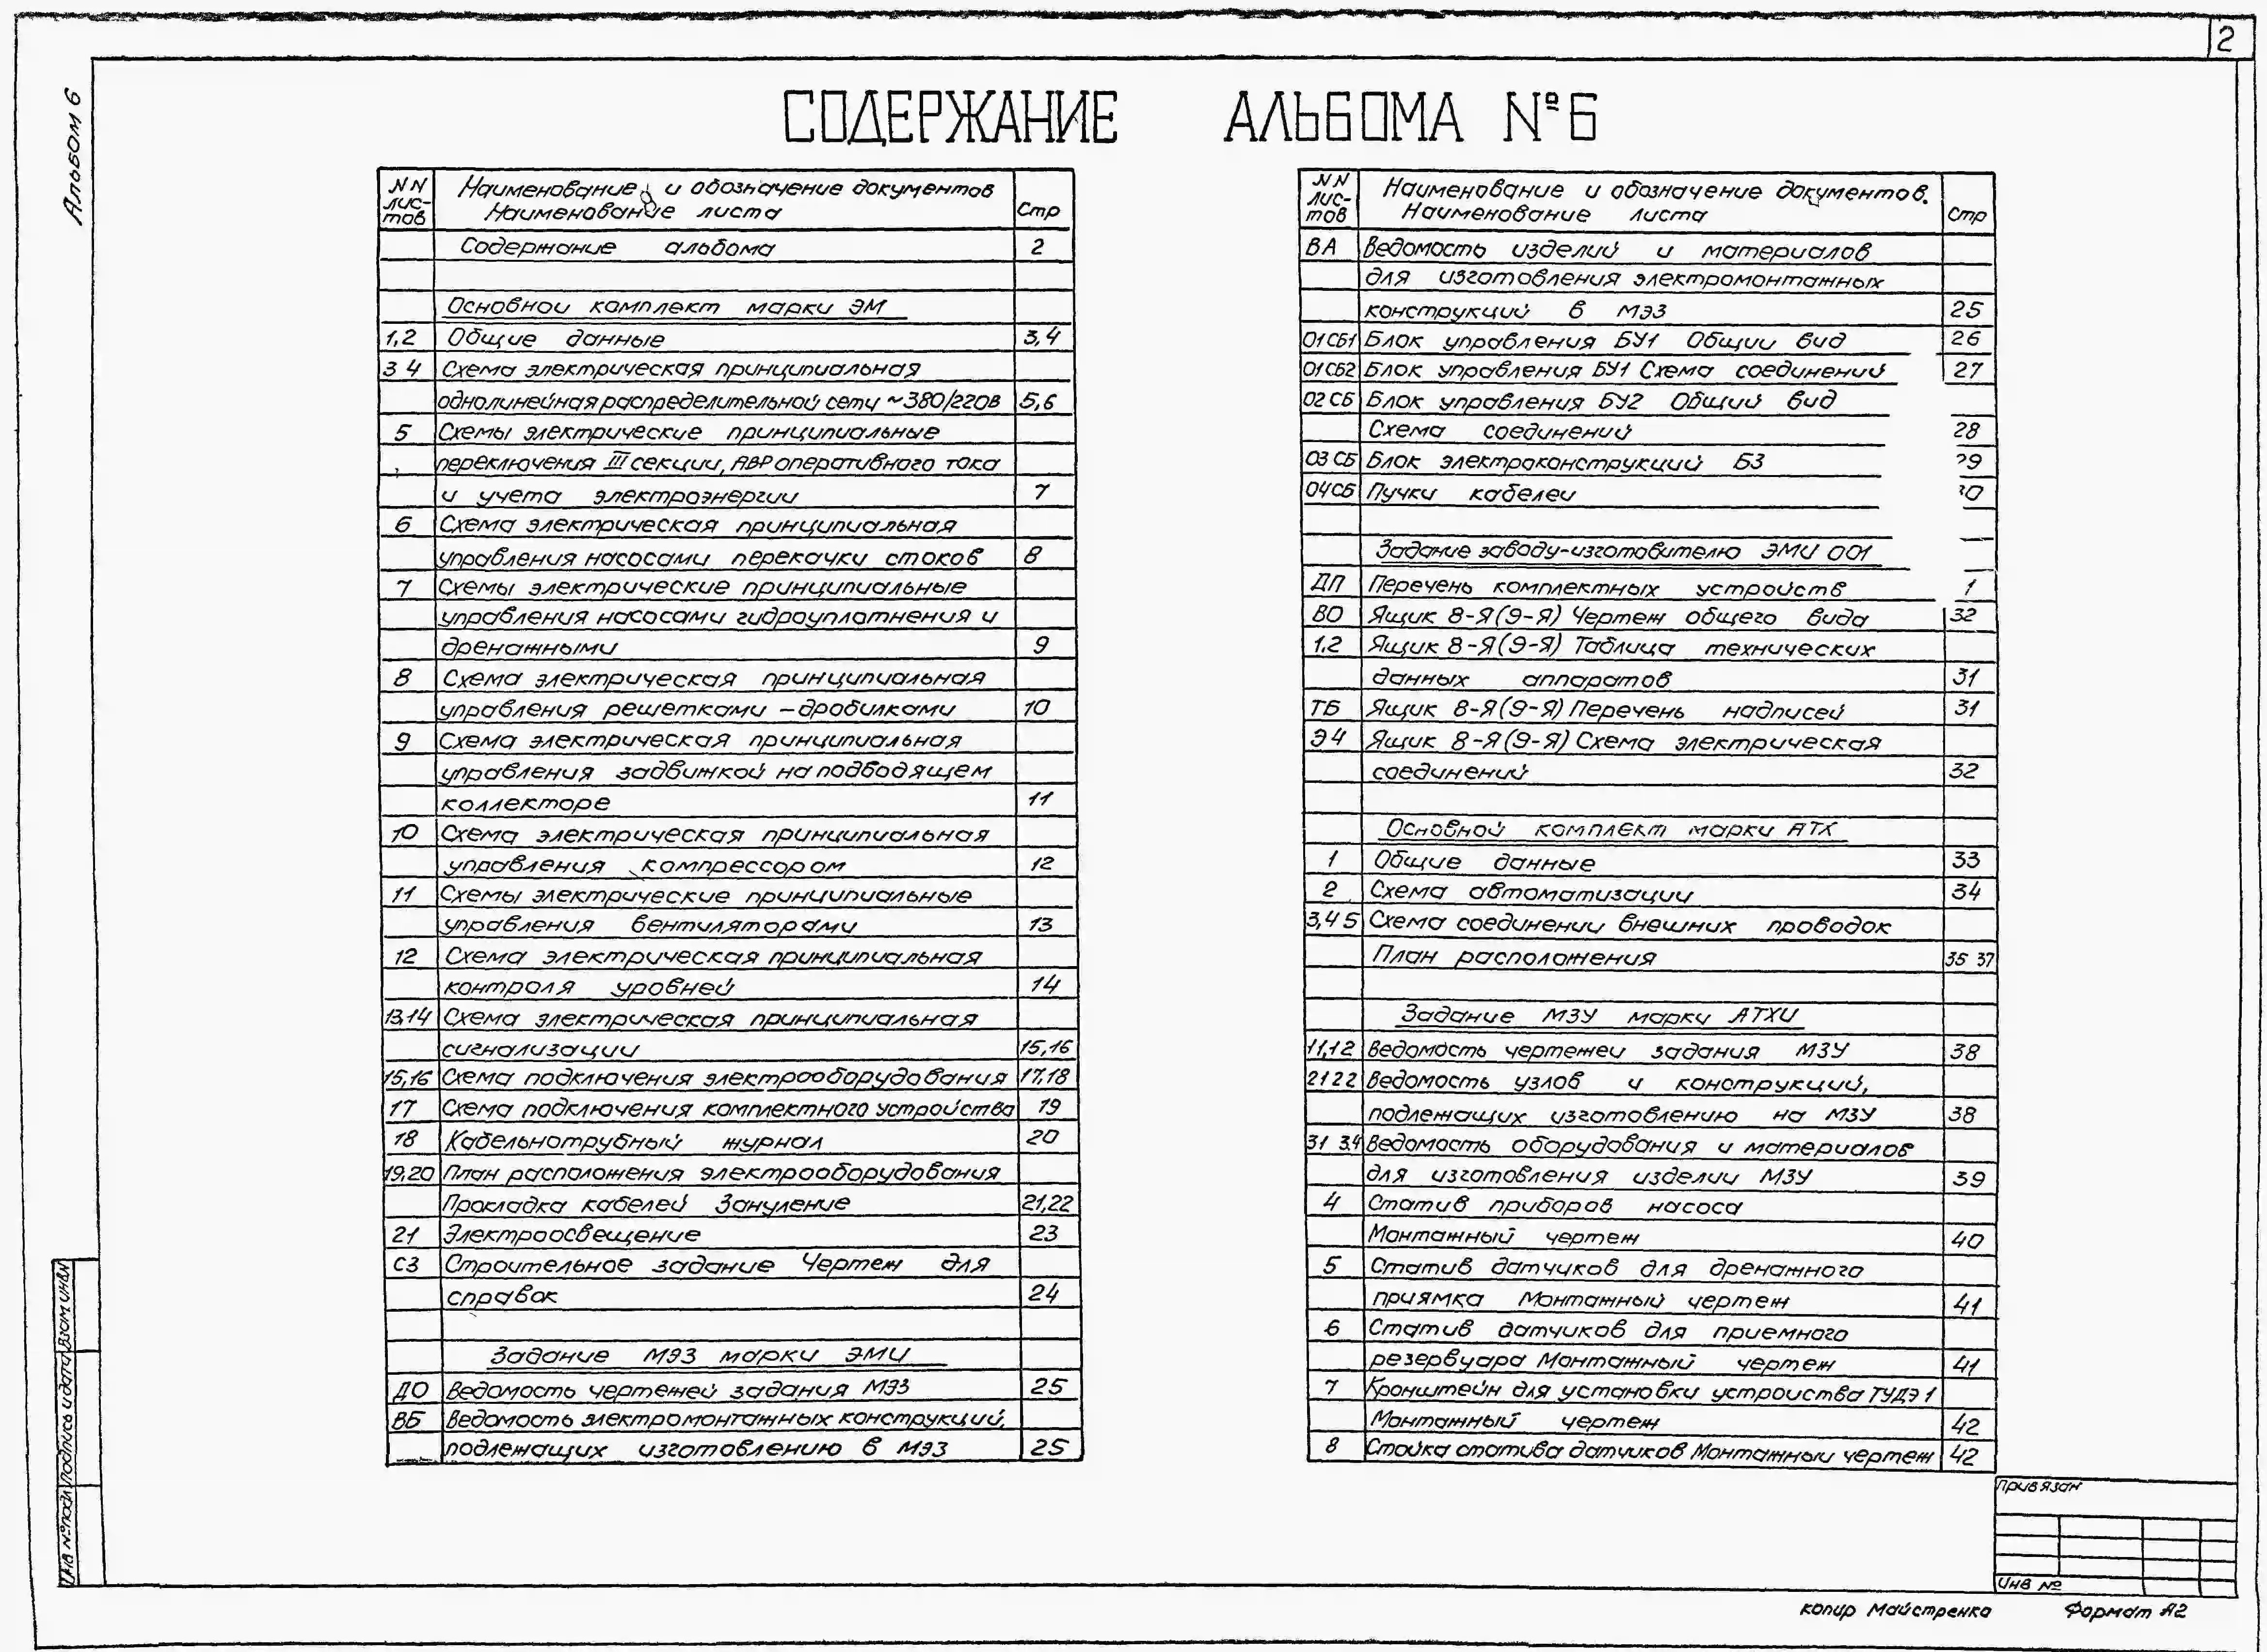 2
Альбом 6
СОДЕРЖАНИЕ АЛЬБОМА №6
NN листов Наименование и обозначение документов Наименование листа Стр
Содержание альбома 2
Основной комплект марки ЭМ
1,2 Общие данные 3,4
3 4 Схема электрическая принципиальная
однолинейная распределительной сети ~380/220В 5,6
5 Схемы электрические принципиальные
переключения III секции, АВР оперативного тока
и учета электроэнергии 7
6 Схема электрическая принципиальная
управления насосами перекачки стоков 8
7 Схемы электрические принципиальные
управления насосами гидроуплотнения и
дренажными 9
8 Схема электрическая принципиальная
управления решетками -дробилками 10
9 Схема электрическая принципиальная
управления задвижкой на подводящем
коллекторе 11
10 Схема электрическая принципиальная
управления компрессором 12
11 Схемы электрические принципиальные
управления вентиляторами 13
12 Схема электрическая принципиальная
контроля уровней 14
13,14 Схема электрическая принципиальная
сигнализации 15,16
15,16 Схема подключения электрооборудования 17,18
17 Схема подключения комплектного устройства 19
18 Кабельнотрубный журнал 20
19,20 План расположения электрооборудования
Прокладка кабелей Зануление 21,22
21 Электроосвещение 23
С3 Строительное задание Чертеж для
справок 24
Задание МЭЗ марки ЭМИ
ДО Ведомость чертежей задания МЭЗ 25
ВБ Ведомость электромонтажных конструкций,
подлежащих изготовлению в МЭЗ 25
NN листов Наименование и обозначение документов. Наименование листа Стр
ВА Ведомость изделий и материалов
для изготовления электромонтажных
конструкций в МЭЗ 25
01СБ1 Блок управления БУ1 Общии вид 26
01СБ2 Блок управления БУ1 Схема соединений 27
02СБ Блок управления БУ2 Общий вид
Схема соединений 28
03СБ Блок электроконструкций Б3 29
04СБ Пучки кабелеи
Задание заводу-изготовителю ЭМИ 001
ДП Перечень комплектных устройств 1
ВО Ящик 8-Я(9-Я) Чертеж общего вида 32
1.2 Ящик 8-Я(9-Я) Таблица технических
данных аппаратов 31
ТБ Ящик 8-Я(9-Я) Перечень надписей 31
Э4 Ящик 8-Я(9-Я) Схема электрическая
соединений 32
Основной комплект марки АТХ
1 Общие данные 33
2 Схема автоматизации 34
3,4 5 Схема соединении внешних проводок
План расположения 35 37
Задание МЗУ марки АТХИ
1.1,1.2 Ведомость чертежеи задания МЗУ 38
21 22 Ведомость узлов и конструкций,
подлежащих изготовлению на МЗУ 38
31 3.4 Ведомость оборудования и материалов
для изготовления изделии МЗУ 39
4 Статив приборов насоса
Монтажный чертеж 40
5 Статив датчиков для дренажного
приямка Монтажный чертеж 41
6 Статив датчиков для приемного
резервуара Монтажный чертеж 41
7 Кронштейн для установки устроиства ТУДЭ 1
Монтажный чертеж 42
8 Стойка статива датчиков Монтажныи чертеж 42
Взам инв N
Подпись и дата
Инв № подл
Привязан
Инв №
копир Майстренко Формат А2